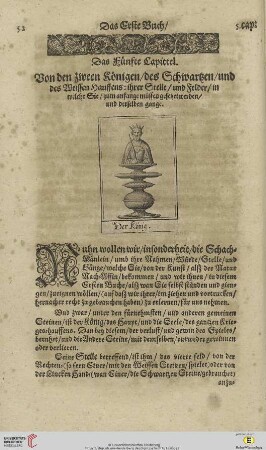 52
Das Erste Buch/
5. cap:
Das Fünfte Capittel.
Von den zween Königen/des Schwartzen/und
des Weissen Hauffens: ihrer Stelle/und Felder/in
welche Sie/zum anfange müssen gesetzt werden/
und derselben gange.
Der König.
NUhn wollen wir/insonderheit/die Schach-
Mänlein/und ihre Nahmen/Würde/Stelle/und
Gänge/welche Sie/von der Kunst/alß der Natur
bekommen/und wir ihnen/in diesem
Ersten Buche/alß wan Sie selbst stünden und gien-
gen/zueignen wöllen/
gemacher recht zu gebrauchen haben/zu erlernen/für uns nehmen.
Und zwar/unter den fürnehmsten/und anderen gemeinen
Steinen/ist der König/das Haupt/und die Seele/des gantzen Krie-
ges-hauffens. Dan bey diesem/der verlust/und gewin des Spieles/
beruhet/und die Andere Steine/mit demselben/entweder gewinnen
oder verlieren.
Seine Stelle betreffend/ist ihm/das vierte feld/von der
Rechten/so Ewer/mit den Weissen Steinen/spielet/oder von
der Lincken Hand/wan Ewer/die Schwartzen Steine/gebrauchet/